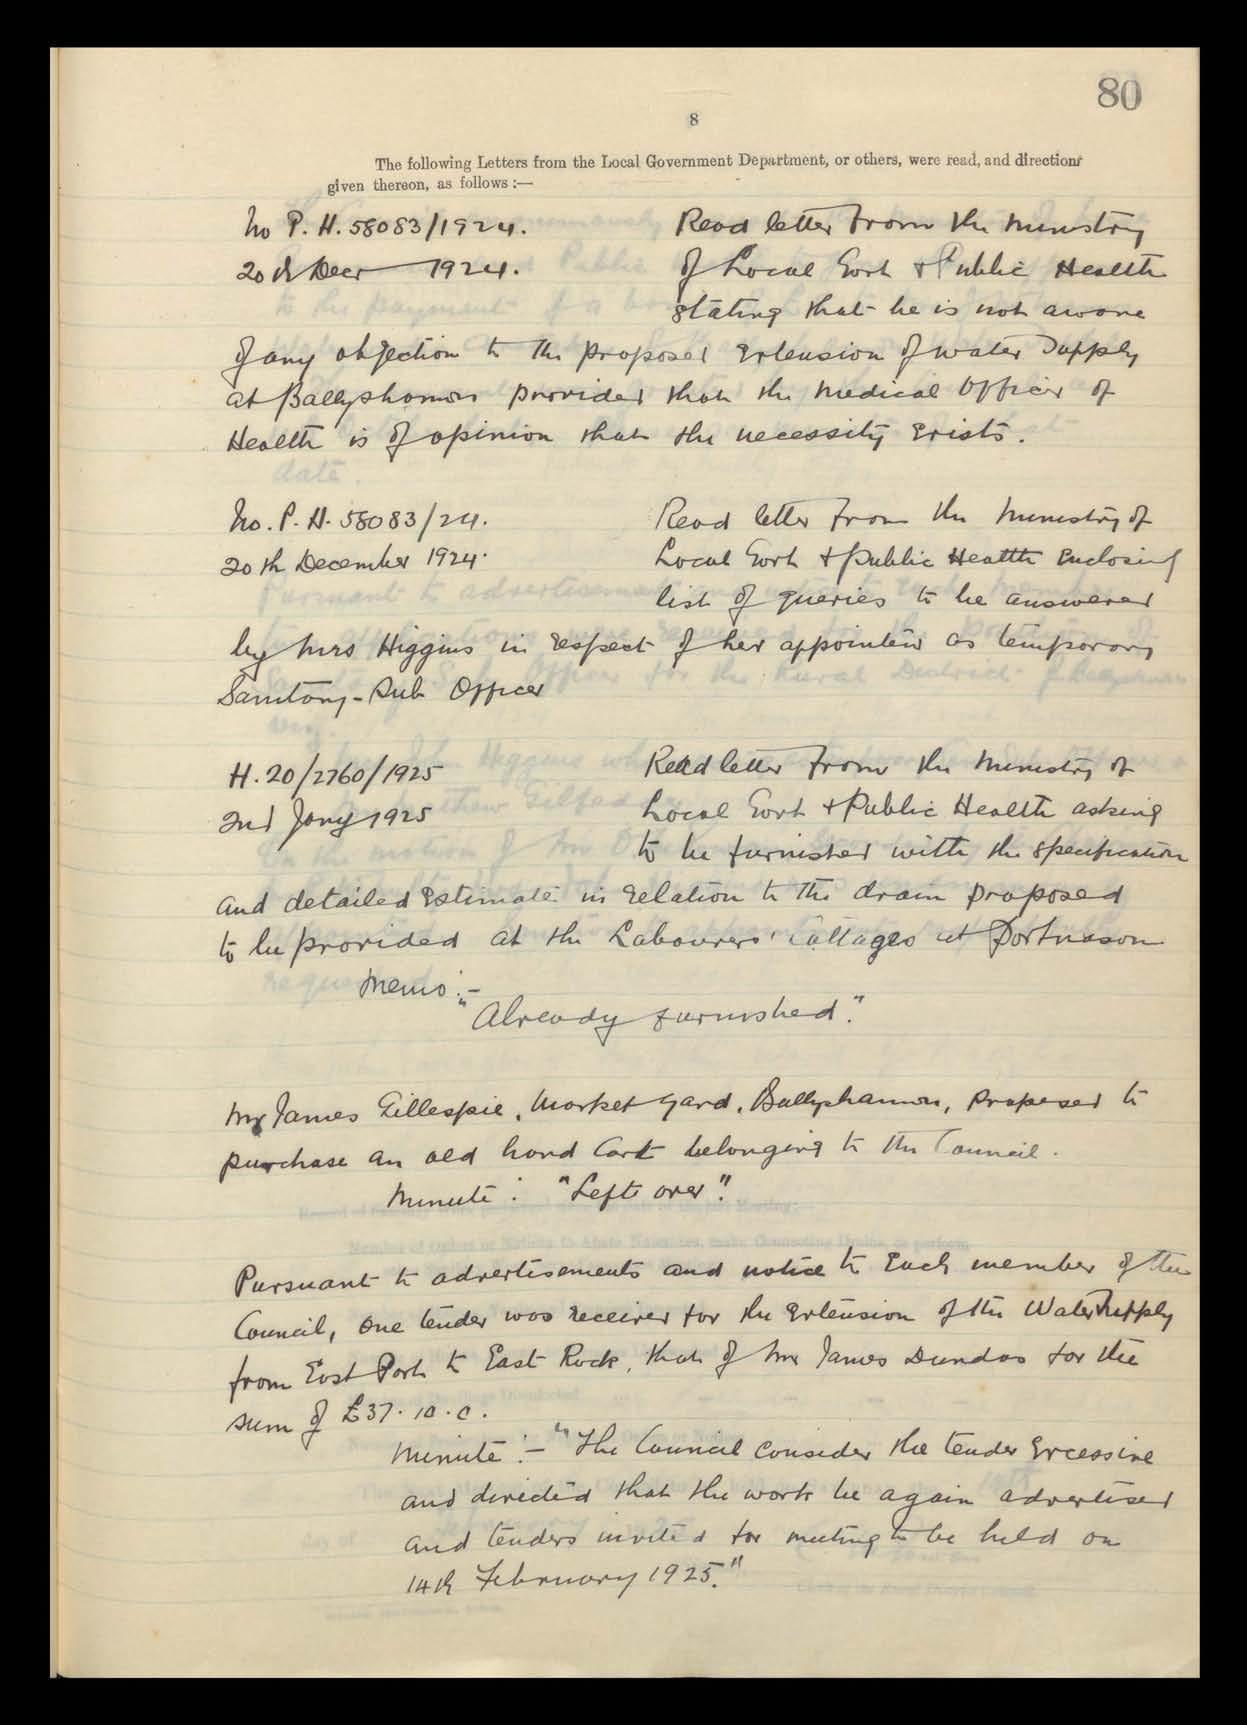 80
8
The following Letters from the Local Government Department, or others, were read, and directions
given thereon, as follows :—
No P. H. 58083/1924. Read letter from the Ministry
20th Decr 1924. of Local Govt & Public Health
stating that he is not aware
of any objection to the proposed Extension of water Supply
at Ballyshannon provided that the Medical Officer of
Health is of opinion that the necessity Exists.
No. P. H. 58083/24. Read letter from the Ministry of
20th December 1924. Local Govt & Public Health Enclosing
list of queries to be answered
by Mrs Higgins in respect of her appointm as temporary
Sanitary-Sub Officer
H. 20/2760/1925 Read letter from the Ministry of
2nd Jany 1925 Local Govt & Public Health asking
to be furnished with the specification
and detailed Estimate in relation to the drain proposed
to be provided at the Labourers' Cottages at Portnason
Memo :-
"Already furnished."
Mr James Gillespie, Market Yard, Ballyshannon, proposed to
purchase an old hand Cart belonging to the Council.
Minute : "Left over".
Pursuant to advertisements and notice to Each member of the
Council, one tender was received for the Extension of the Water Supply
from East Port to East Rock, that of Mr James Dundas for the
sum of £37. 10. 0.
Minute :- "The Council consider the tender Excessive
and directed that the work be again advertised
and tenders invited for meeting to be held on
14th February 1925."